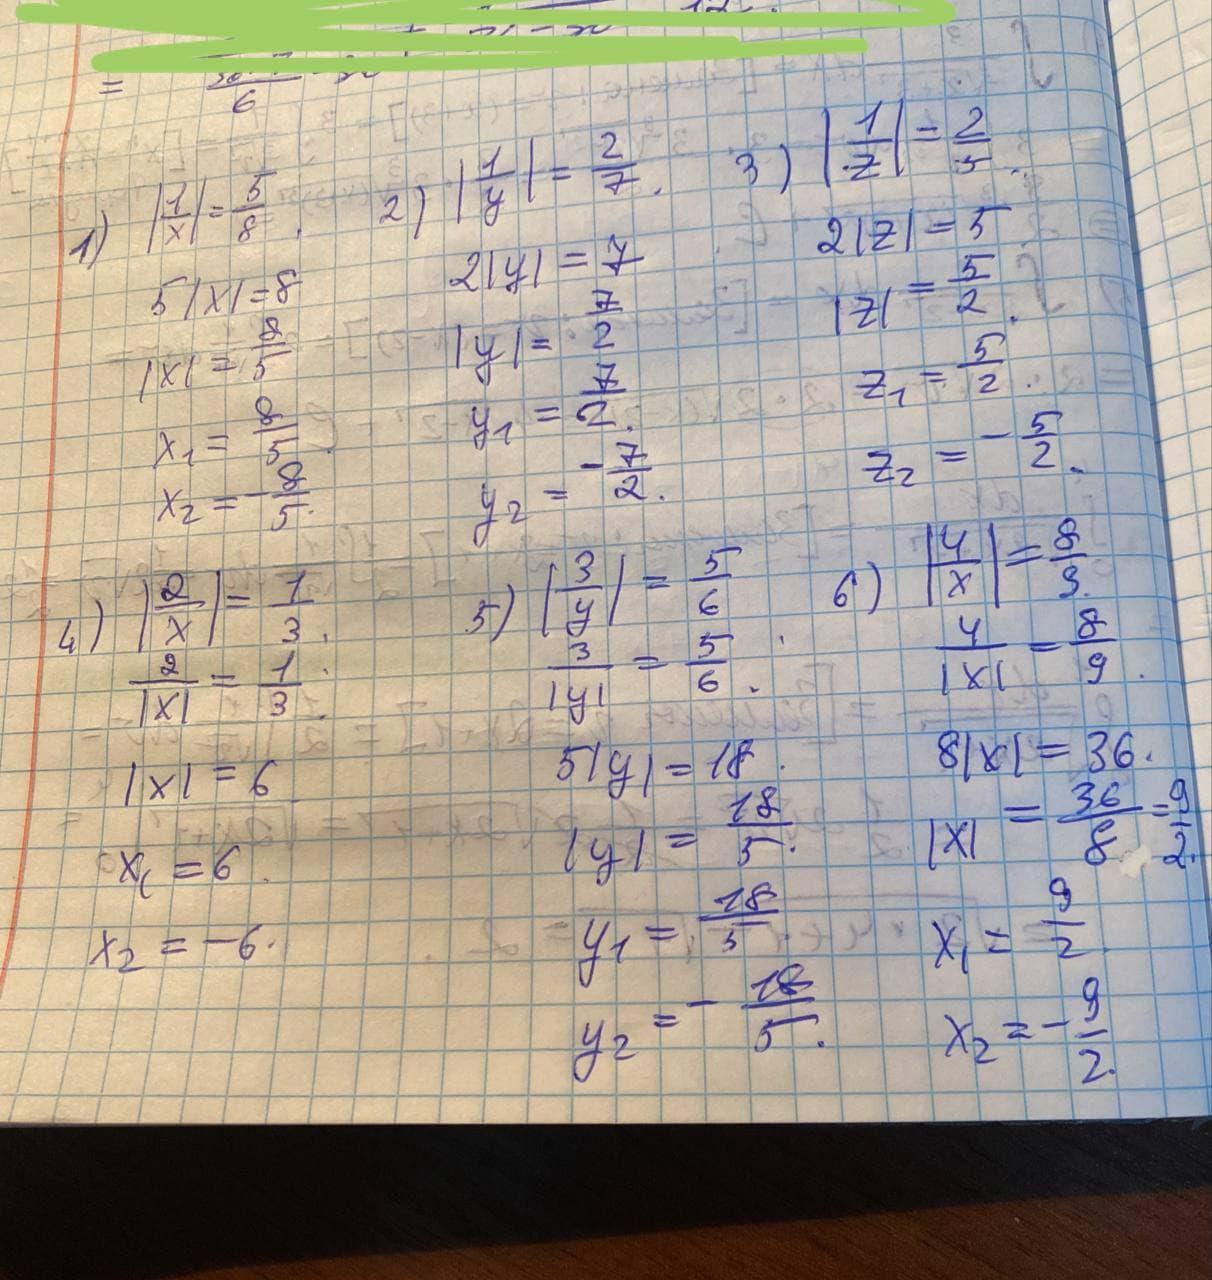 = 6
1) |1/x| = 5/8.
5|x| = 8
|x| = 8/5
x₁ = 8/5
x₂ = -8/5.
2) |1/y| = 2/7.
2|y| = 7
|y| = 7/2
y₁ = 7/2.
y₂ = -7/2.
3) |1/z| = 2/5.
2|z| = 5
|z| = 5/2.
z₁ = 5/2.
z₂ = -5/2.
4) |2/x| = 1/3.
2/|x| = 1/3.
|x| = 6
x₁ = 6.
x₂ = -6.
5) |3/y| = 5/6.
3/|y| = 5/6.
5|y| = 18.
|y| = 18/5.
y₁ = 18/5.
y₂ = -18/5.
6) |4/x| = 8/9.
4/|x| = 8/9.
8|x| = 36.
|x| = 36/8 = 9/2.
x₁ = 9/2.
x₂ = -9/2.